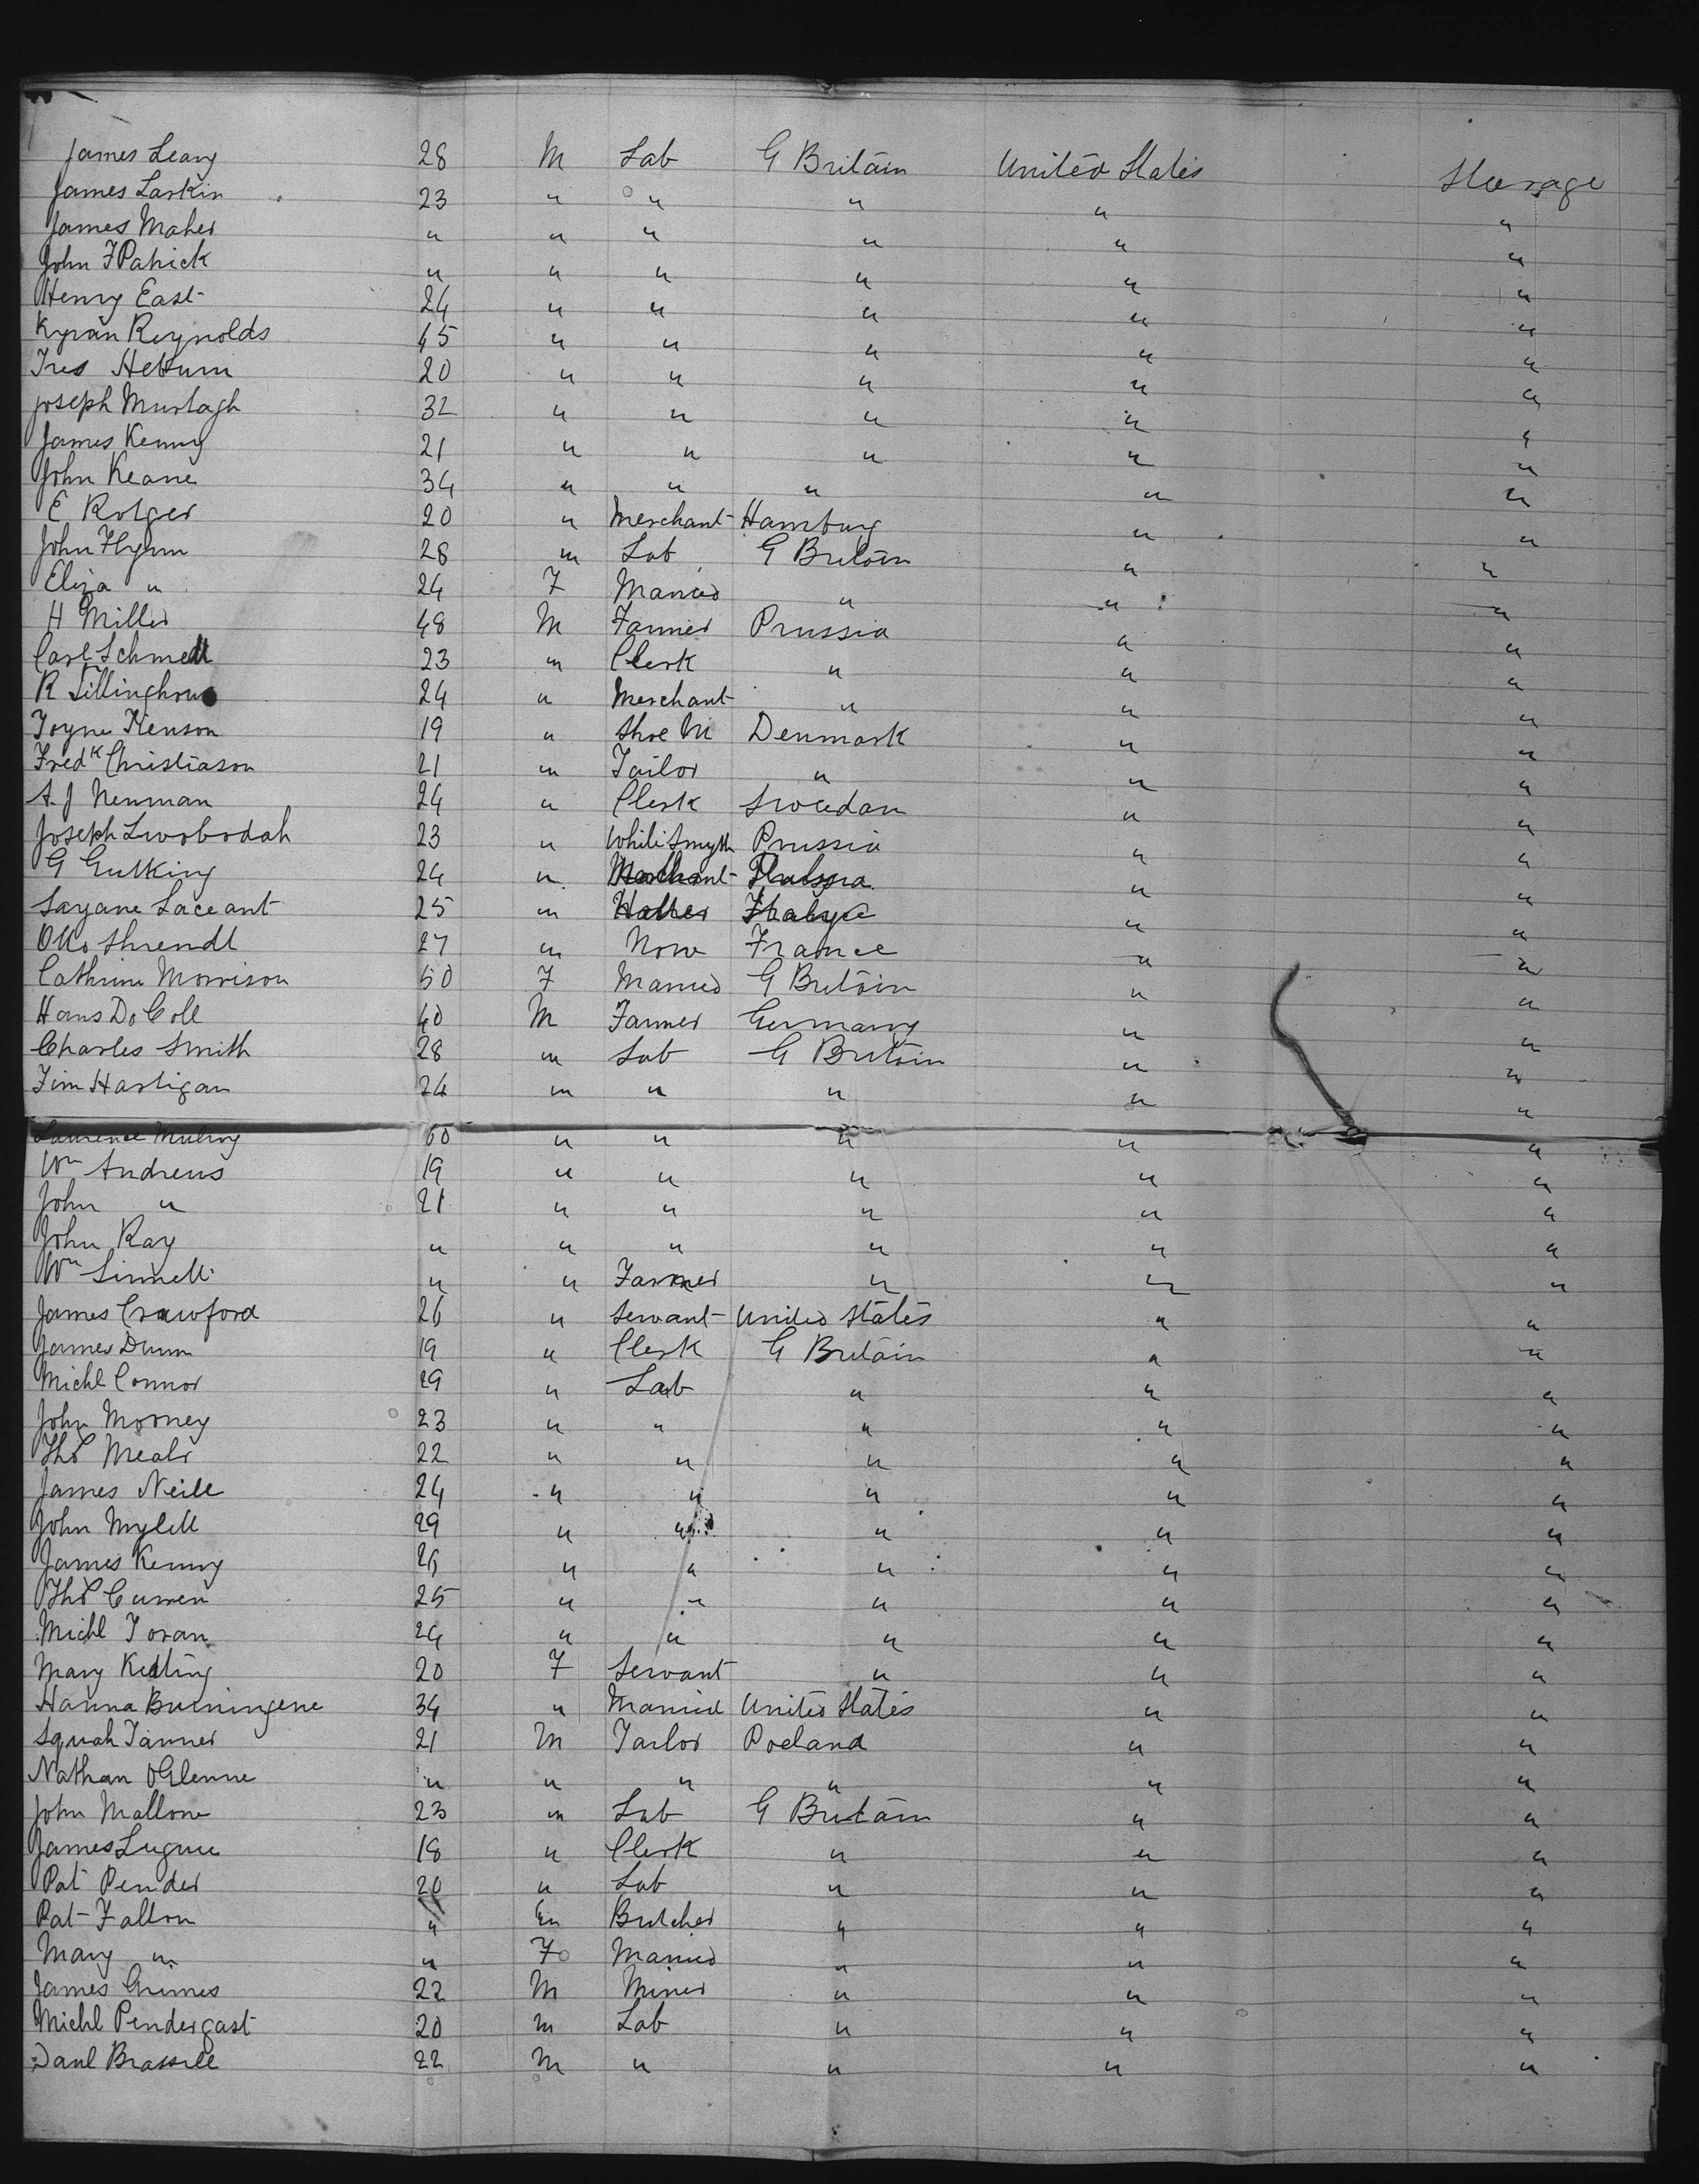 James Leary 28 M Lab G Britain United States Steerage
James Larkin 23 " " " " "
James Maher " " " " " "
John F Patrick " " " " " "
Henry East 24 " " " " "
Kyran Reynolds 45 " " " " "
20 " " " " "
Joseph Murtagh 32 " " " " "
James Kenny 21 " " " " "
John Keane 34 " " " " "
E Rolger 20 " Merchant Hamburg " "
John Flynn 28 " Lab G Britain " "
Eliza " 24 F Married " " "
H Miller 48 M Farmer Prussia " "
Carl Schmell 23 " Clerk " " "
R 24 " Merchant " " "
19 " Shoe M Denmark " "
Fredk Christiason 21 " Tailor " " "
A. J Newman 24 " Clerk Swedan " "
Joseph Swobodah 23 " WhiteSmyth Prussia " "
G Gutking 24 " Merchant " "
25 " Hatter Italy " "
Otto 27 " None France " "
Cathrine Morrison 50 F Married G Britain " "
Hans DoColl 40 M Farmer Germany " "
Charles Smith 28 " Lab G Britain " "
Tim Hartigan 24 " " " " "
Laurence Mulroy 60 " " " " "
Wm Andrews 19 " " " " "
John " 21 " " " " "
John Ray " " " " " "
Wm Sinnell " " Farmer " " "
James Crawford 26 " Servant United States " "
James Dunn 19 " Clerk G Britain " "
Michl Connor 29 " Lab " " "
John Mooney 23 " " " " "
Thos 22 " " " " "
James Neill 24 " " " " "
John 29 " " " " "
James Kenny 26 " " " " "
Thos Curren 25 " " " " "
Michl Foran 24 " " " " "
Mary Keating 20 F Servant " " "
Hanna Burningene 34 " Married United States " "
Squah Tanner 21 M Tailor Poeland " "
Nathan OGlenne " " " " " "
John Mallone 23 " Lab G Britain " "
James 18 " Clerk " " "
Pat Pender 20 " Lab " " "
Pat Fallon " " Butcher " " "
Mary " " F Married " " "
James Grimes 22 M Miner " " "
Michl Pendergast 20 M Lab " " "
Danl Brassill 22 M " " " "